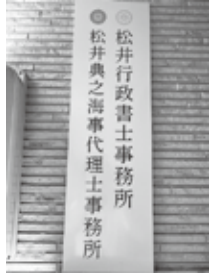 松井行政書士事務所
松井典之海事代理士事務所